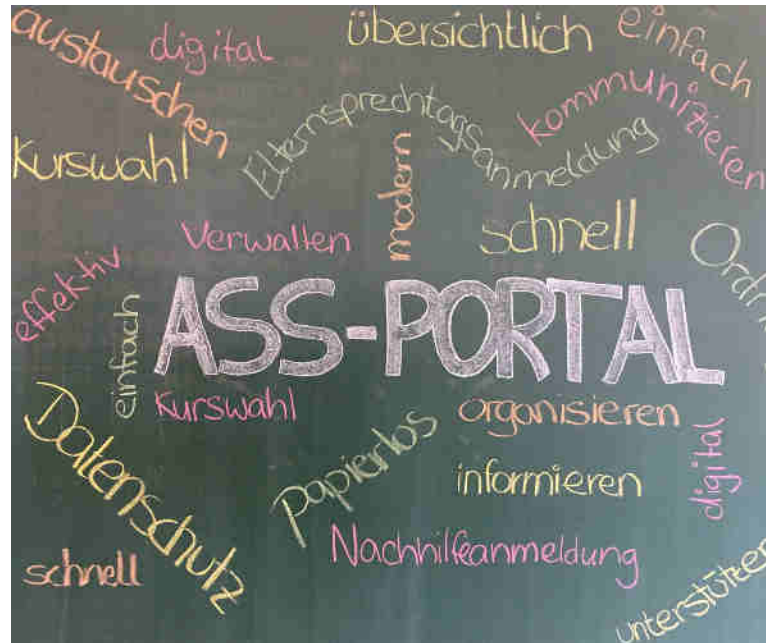 austauschen
digital
übersichtlich
einfach
Kurswahl
Elternsprechtagsanmeldung
kommunizieren
modern
Verwalten
schnell
effektiv
einfach
ASS-PORTAL
Kurswahl
organisieren
Datenschutz
papierlos
informieren
digital
schnell
Nachhilfeanmeldung
unterstützen